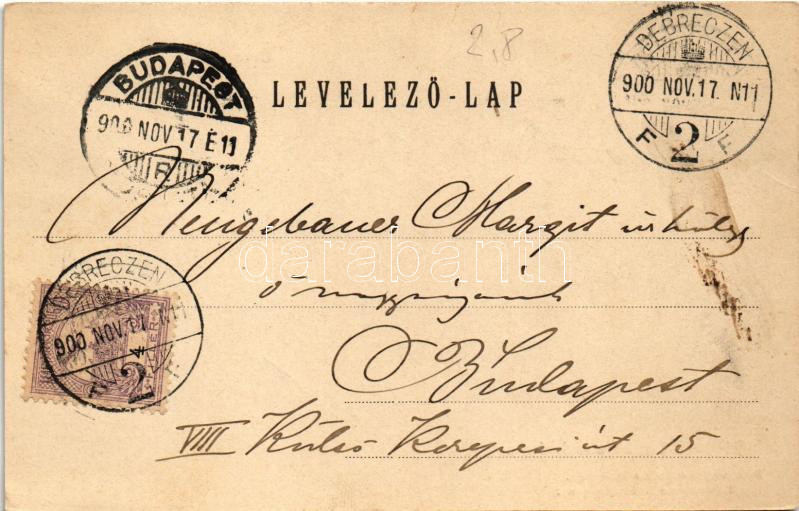 2,8
LEVELEZŐ-LAP
BUDAPEST
900 NOV. 17 É 11
R
DEBRECZEN
900 NOV. 17. N11
F 2 F
Neugebauer Margit úrhölgy
ő nagyságának
Budapest
VIII Külső Kerepesi út 15
DEBRECZEN
900 NOV. 17. N11
2 F
darabanth